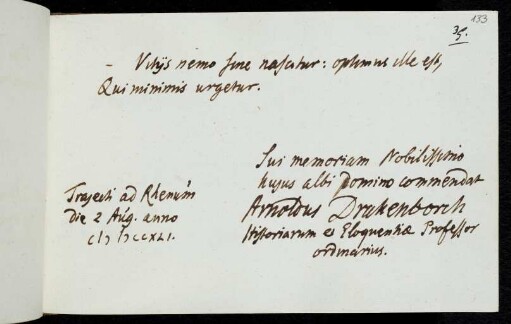 133
35.
– Vitijs nemo sine nascitur: optimus ille est,
Qui minimis urgetur.
Sui memoriam Nobilissimo
hujus albi Domino commendat
Arnoldus Drakenborch
Historiarum et Eloquentiæ Professor
ordinarius.
Trajecti ad Rhenum
die 2 Aug. anno
cIɔ Iɔ CCXLI.